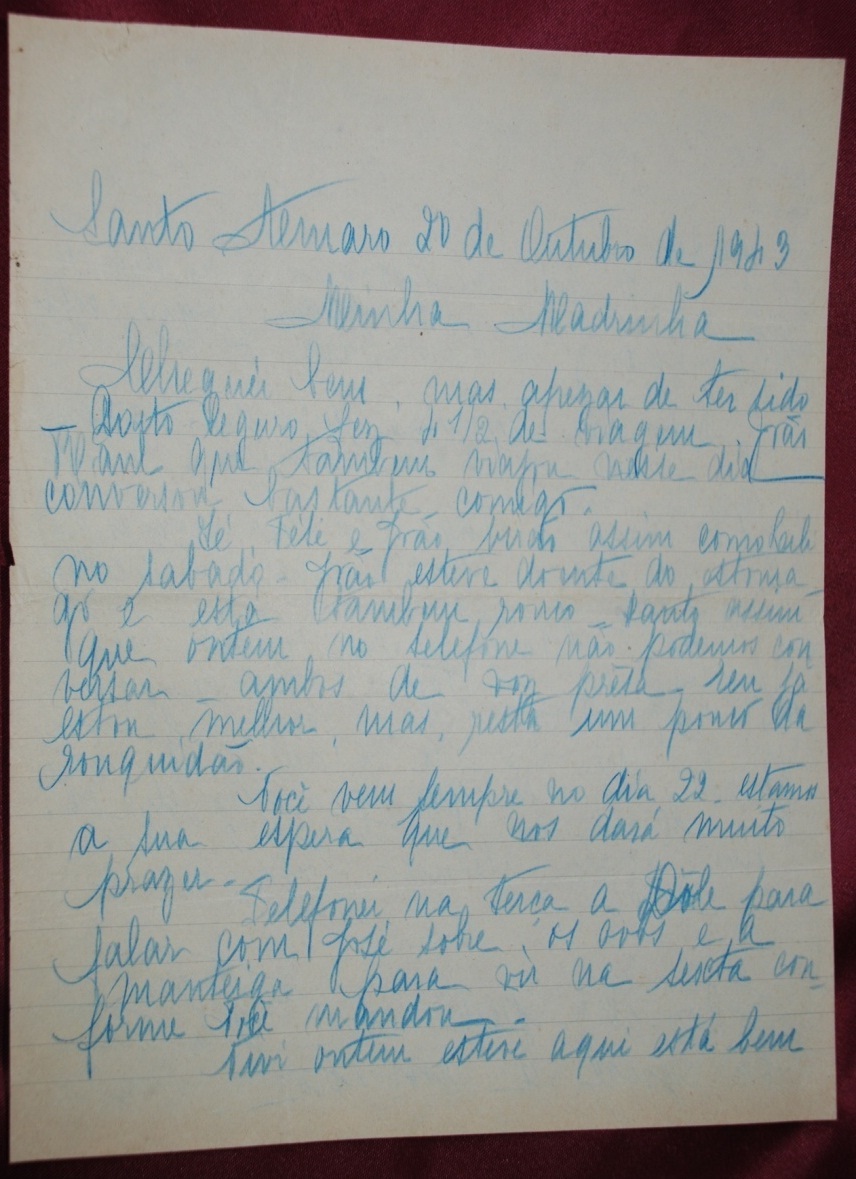 Santo Amaro 20 de Outubro de 1943
Minha Madrinha
Cheguei bem, mas, apezar de ter sido
Porto Seguro fez 4 1/2 de viagem. João
que tambem viajou nesse dia
conversou bastante comigo.
Zé Félé e João virão assim como
no sabado - João esteve doente do estoma-
go e está tambem rouco tanto assim
que ontem no telefone não podemos con
versar - ambos de voz prêsa. eu já
estou melhor, mas, resta um pouco da
rouquidão.
Você vem sempre no dia 22 - estamos
a sua espera que nos dará muito
prazer -
Telefonei na terca a Dôle para
falar com José sobre os ovos e a
manteiga para vir na sexta con-
forme você mandou -
Vivi ontem esteve aqui está bem